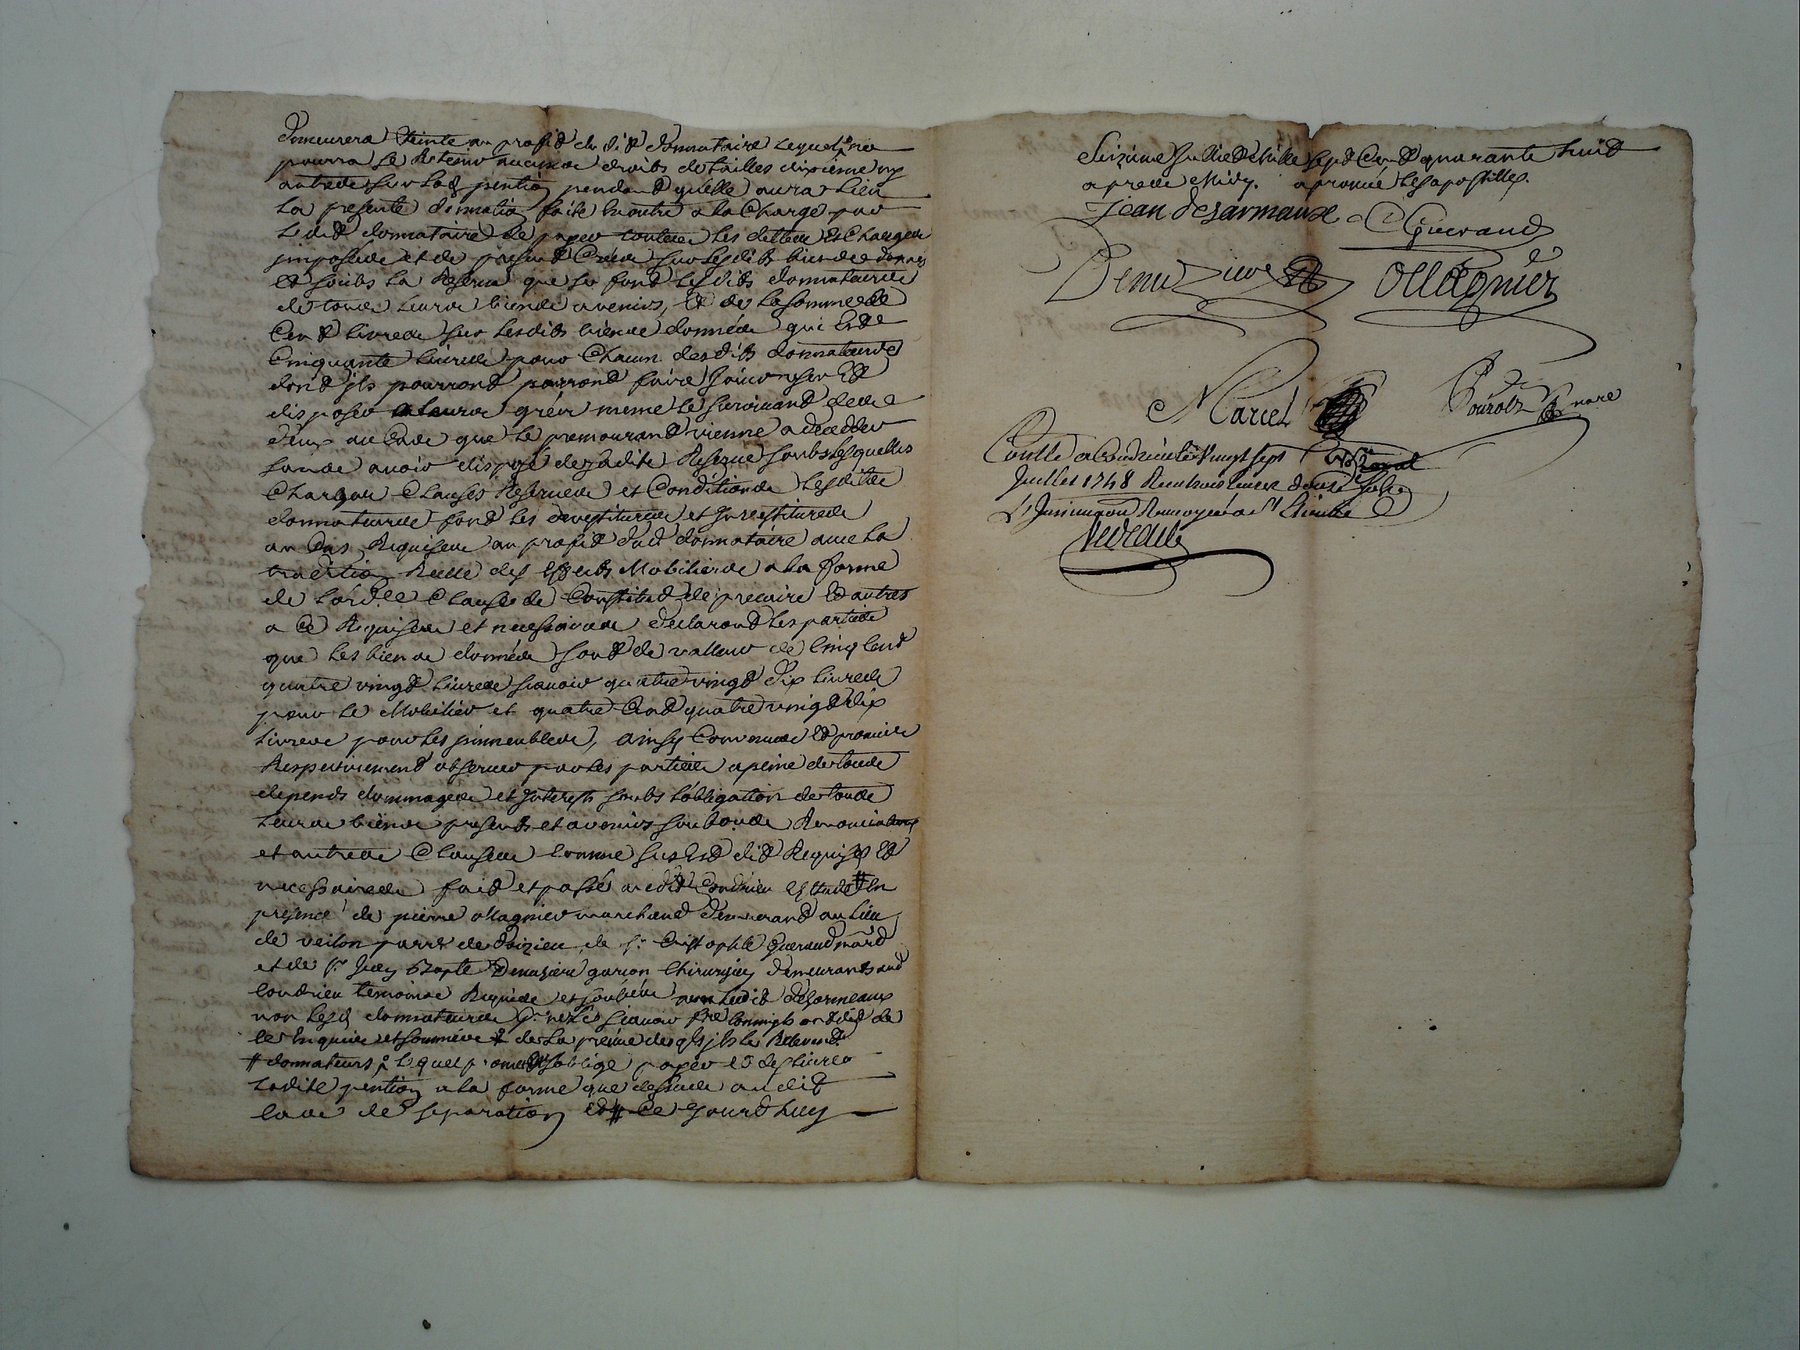 demeurera éteinte au profit du dit donnataire lequel ne
pourra se retenir aucuns droits de tailles dixieme ny
autres sur lad pention pendant qu'elle aura lieu
La presente donnation faite en outre a la Charge par
Ledit donnataire de payer toutes les dettes et Charges
imposées et de present Crées sur lesdits biens donnés
et soubs la Reserve que se font lesdits donnateurs
de tous leurs biens avenirs, et de la somme de
Cent livres sur lesdits biens donnés qui est de
Cinquante livres pour Chacun desdits donnateurs
dont ils pourront pourront faire jouir user et
disposer a leurs gréz meme le survivant deux
d'eux au Cas que le premourant vienne a deceder
sans avoir disposé de sadite Reserve soubs lesquelles
Charges Clauses Reserves et Conditions lesdits
donnateurs font les devestitures et Investitures
au Cas Requises au profit dud donnataire avec la
tradition Réelle des effects Mobiliers a la forme
de l'ord.ce Clauses de Constitut de precaire et autres
a Ce Requises et necessaires declarant les parties
que les biens donnés sont de valleur de Cinq Cent
quatre vingt livres sçavoir quatre vingt dix livres
pour le Mobilier et quatre Cent quatre vingt dix
livres pour les immeubles, ainsy Convenu et promis
Respectivement observer par les parties a peine de tous
depends dommages et Interests soubs l'obligation de tous
leurs biens presents et avenirs soub
et autres Clauses comme sus est dit Requises et
necessaires fait et passé audit Condrieu Estude # En
presence de pierre ollagnier marchand demeurant au lieu
de veilon parr de doizieu de sr. Cristophle Guerand mard
et de sr Jean Bapte Denuziere garçon Chirurgien demeurants aud
Condrieu temoins Requis et soussignés avec ledit desarmeaux
non lesd donnateurs pr ne le sçavoir
de ce Enquis et sommés
# donnateurs lequel promet et s'oblige payer et deslivrer
ladite pention a la forme que dessus audit
Cas de separation et # Ce Jourd'huy
Seizieme Juillet Mille sept Cent quarante huit
apres Midy. aprouvé les apostilles.
Jean desarmaux C Guerand
Denuziere Ollagnier
Marcel
Contlle a Condrieu le vingt sept
Juillet 1748 Receu trois livres douze sols
L'Insinuaon Renvoyée a St Etienne